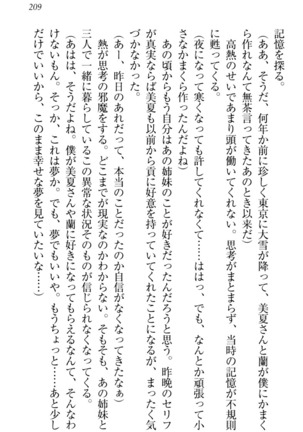 209
記憶を探る。
（ああ、そうだ、何年か前に珍しく東京に大雪が降って、美夏さんと蘭が僕にかまく
ら作れなんて無茶言ってきたあのとき以来だ）
高熱のせいであまり頭が働いてくれない。思考がまとまらず、当時の記憶が不規則
に甦ってくる。
（夜になって寒くなっても許してくれなくて……ははっ、でも、なんとか頑張って小
さなかまくら作ったんだよね）
あの頃からもう自分はあの姉妹のことが好きだったんだろうと思う。昨晩のセリフ
が真実ならば美夏も以前から貢に好意を持っていてくれたことになるが、まったく気
づかなかった。
（あー、昨日のあれだって、本当のことだったのか自信がなくなってきたなぁ）
熱が思考の邪魔をする。どこまでが現実なのかわからない。そもそも、あの姉妹と
三人で一緒に暮らしているこの異常な状況そのものが信じられなくなってくる。
（あはは、そうだよね。僕が美夏さんや蘭に好きになってもらえるなんて、そんなわ
けないもん。そっか、これは夢か。でも、夢でもいいや。もうちょっと……あと少し
だけでいいから、このまま幸せな夢を見ていたいな……）